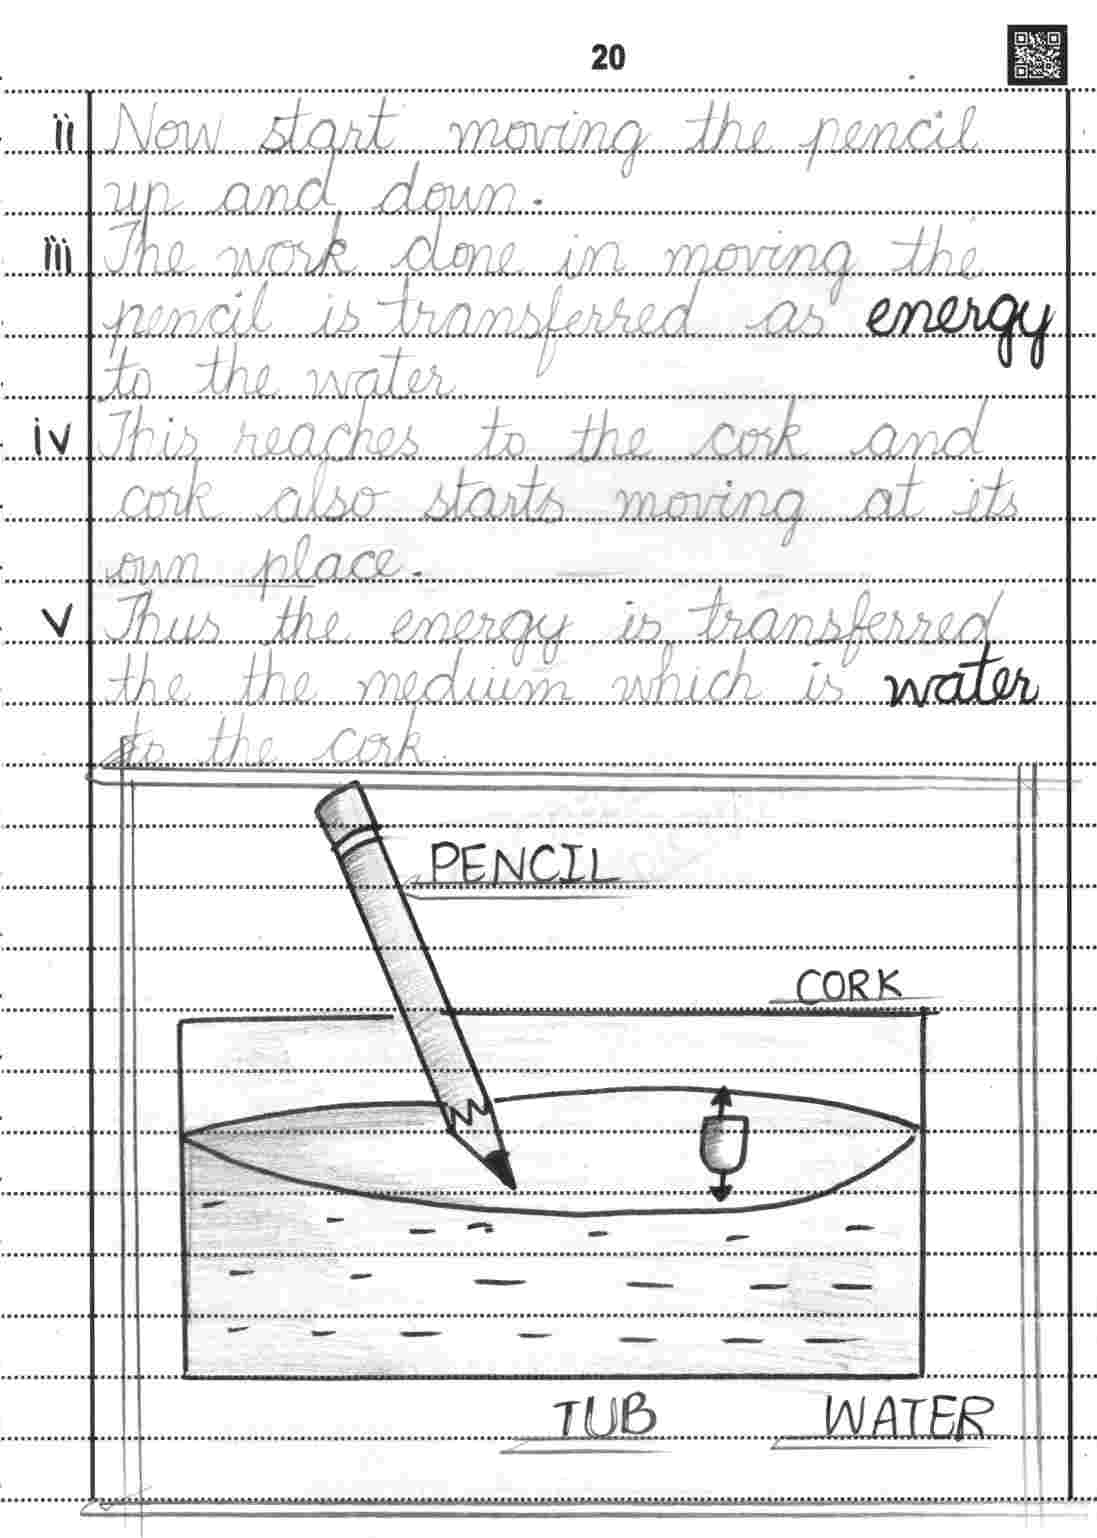 20
ii Now start moving the pencil
up and down.
iii The work done in moving the
pencil is transferred as energy
to the water
iv This reaches to the cork and
cork also starts moving at its
own place.
v Thus the energy is transferred
the the medium which is water
to the cork.
PENCIL
CORK
TUB WATER